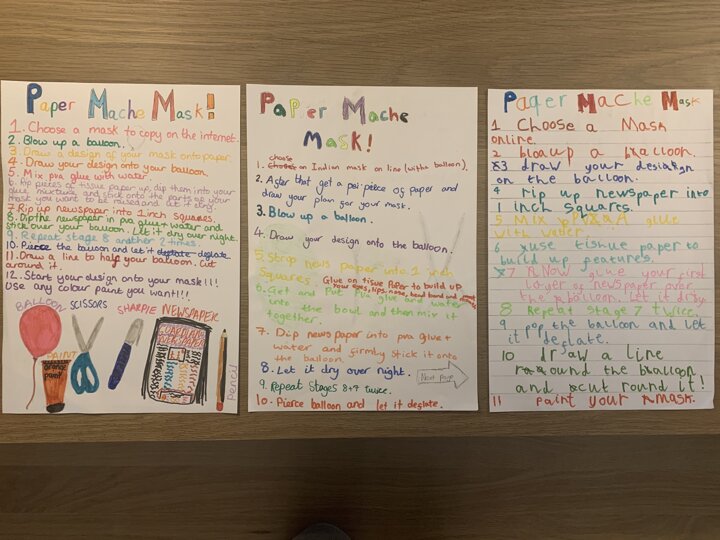 Paper Mache Mask!
1. Choose a mask to copy on the internet.
2. Blow up a balloon.
3. Draw a design of your mask onto paper.
4. Draw your design onto your balloon.
5. Mix pva glue with water.
6. Rip pieces of tissue paper up, dip them into your
glue mixture and stick onto the parts of your
mask you want to be raised and let it dry.
7. Rip up newspaper into 1 inch squares.
8. Dip the newspaper in pva glue + water and
stick over your balloon. Let it dry over night.
9. Repeat stage 8 another 2 times.
10. Pierce the balloon and let it deflate deflate
11. Draw a line to half your balloon. Cut
around it.
12. Start your design onto your mask!!!
Use any colour paint you want!!!
BALLOON
SCISSORS
SHARPIE
NEWSPAPER
PAINT
orange
paint
Pencil
PaPier Mache
Mask!
choose
1. on Indian mask on line (with a balloon).
2. After that get a peice of paper and
draw your plan for your mask.
3. Blow up a balloon.
4. Draw your design onto the balloon.
5. Strip news paper into 1 inch
squares. Glue on tissue Paper to build up
your eyes, lips, nose, head band and
6. Get and Put pva glue and water
into the bowl and then mix it
together.
7. Dip news paper into pva glue +
water and firmly stick it onto
the balloon.
8. Let it dry over night.
9. Repeat stages 8+7 twice.
Next Page
10. Pierce balloon and let it deflate.
Paper Mache Mask
1 Choose a Mask
online.
2 bloaup a balloon.
3 draw your desiaign
on the balloon.
4 rip up newspaper into
1 inch squares.
5 Mix up PVA glue
with water.
6 use tishue paper to
build up features.
7 Now glue your first
layer of newspaper over
the balloon. Let it dry
8 Repeat Stage 7 twice.
9 pop the balloon and let
it deflate.
10 draw a line
around the balloon
and cut round it!
11 paint your mask.